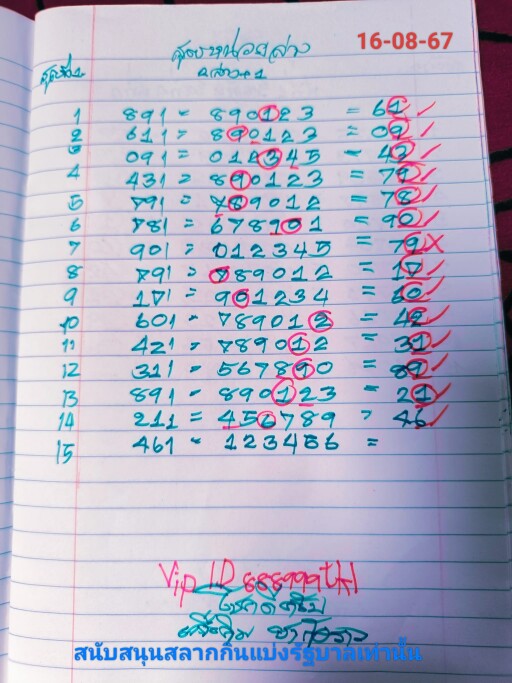 สูตรหน่วยล่าง
16-08-67
1 891 = 890123 = 61 ✓
2 611 = 890123 = 09 ✓
3 091 = 012345 = 42 ✓
4 431 = 890123 = 79 ✓
5 791 = 789012 = 78 ✓
6 781 = 678901 = 90 ✓
7 901 = 012345 = 79 X
8 791 = 789012 = 17 ✓
9 171 = 901234 = 60 ✓
10 601 = 789012 = 42 ✓
11 421 = 789012 = 31 ✓
12 311 = 567890 = 89 ✓
13 891 = 890123 = 21 ✓
14 211 = 456789 = 46 ✓
15 461 = 123456 =
Vip ID 888999
สนับสนุนสลากกินแบ่งรัฐบาลเท่านั้น